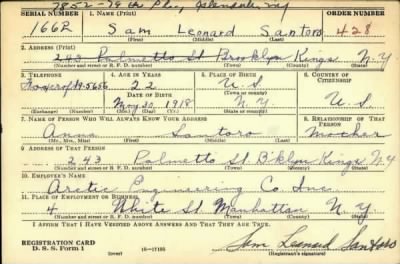 7852-79th Place, Glendale, NY
SERIAL NUMBER 1. NAME (Print) ORDER NUMBER
1662 Sam Leonard Santoro 428
(First) (Middle) (Last)
2. ADDRESS (Print)
243 Palmetto St Brooklyn Kings N.Y
(Number and street or R. F. D. number) (Town) (County) (State)
3. TELEPHONE 4. AGE IN YEARS 5. PLACE OF BIRTH 6. COUNTRY OF CITIZENSHIP
Foxcroft 9-5656 22 U.S
DATE OF BIRTH (Town or county)
May 20, 1918 N.Y. U.S.
(Exchange) (Number) (Mo.) (Day) (Yr.) (State or country)
7. NAME OF PERSON WHO WILL ALWAYS KNOW YOUR ADDRESS 8. RELATIONSHIP OF THAT PERSON
Anna Santoro mother
(Mr., Mrs., Miss) (First) (Middle) (Last)
9. ADDRESS OF THAT PERSON
243 Palmetto St. Bklyn Kings N.Y
(Number and street or R. F. D. number) (Town) (County) (State)
10. EMPLOYER'S NAME
Arctic Engineering Co Inc.
11. PLACE OF EMPLOYMENT OR BUSINESS
4 White St. Manhattan N.Y.
(Number and street or R. F. D. number) (Town) (County) (State)
I AFFIRM THAT I HAVE VERIFIED ABOVE ANSWERS AND THAT THEY ARE TRUE.
REGISTRATION CARD
D. S. S. Form 1 (over) Sam Leonard Santoro
(Registrant's signature)